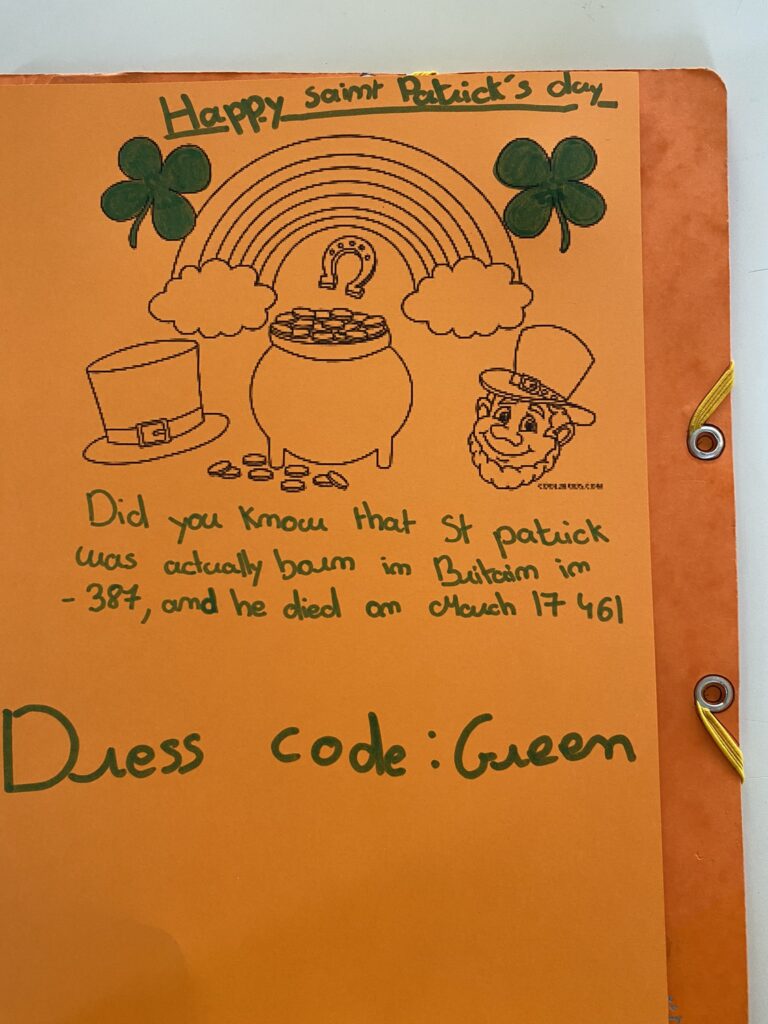 Happy saint Patrick's day
Did you know that St patrick
was actually born in Britain in
- 387, and he died on March 17 461
Dress code : Green